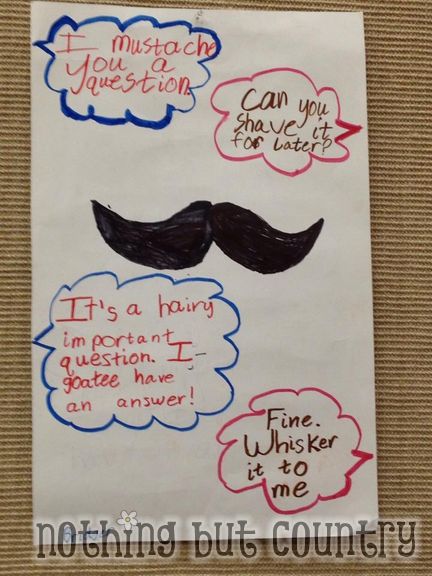 I mustache
you a
question.
Can you
shave it
for later?
It's a hairy
important
question. I
goatee have
an answer!
Fine.
Whisker
it to
me
nothing but country